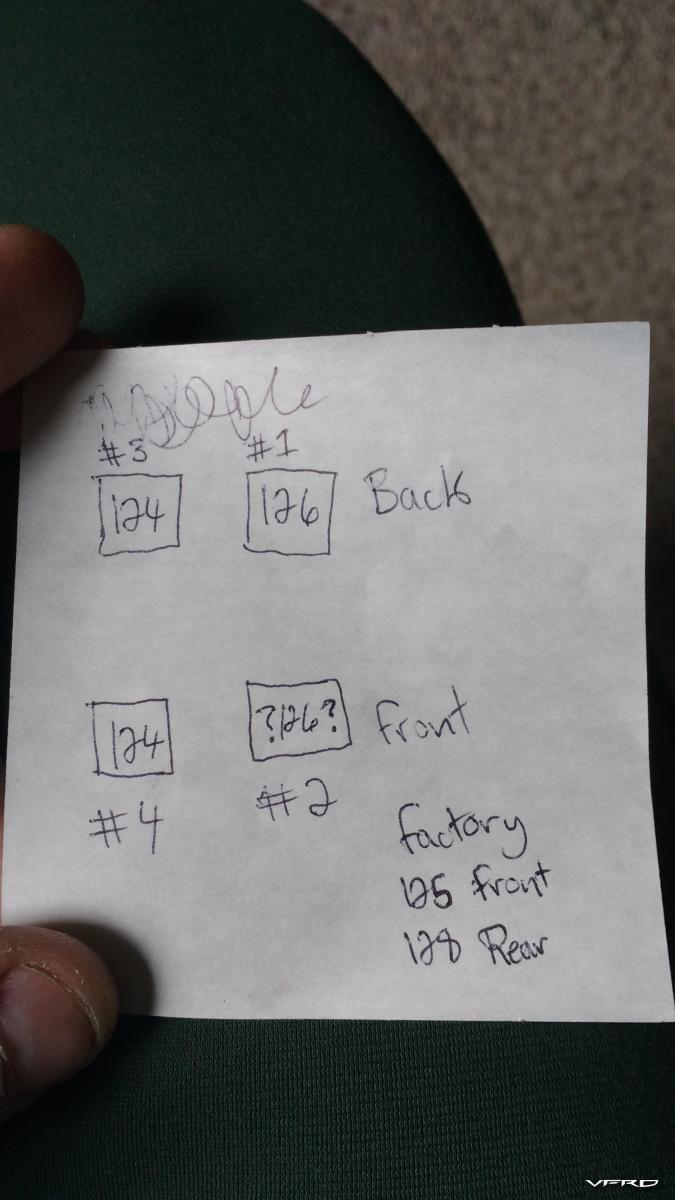 #3 #1
124 126 Back
124 ?126? Front
#4 #2
factory
125 front
128 Rear
VFRD